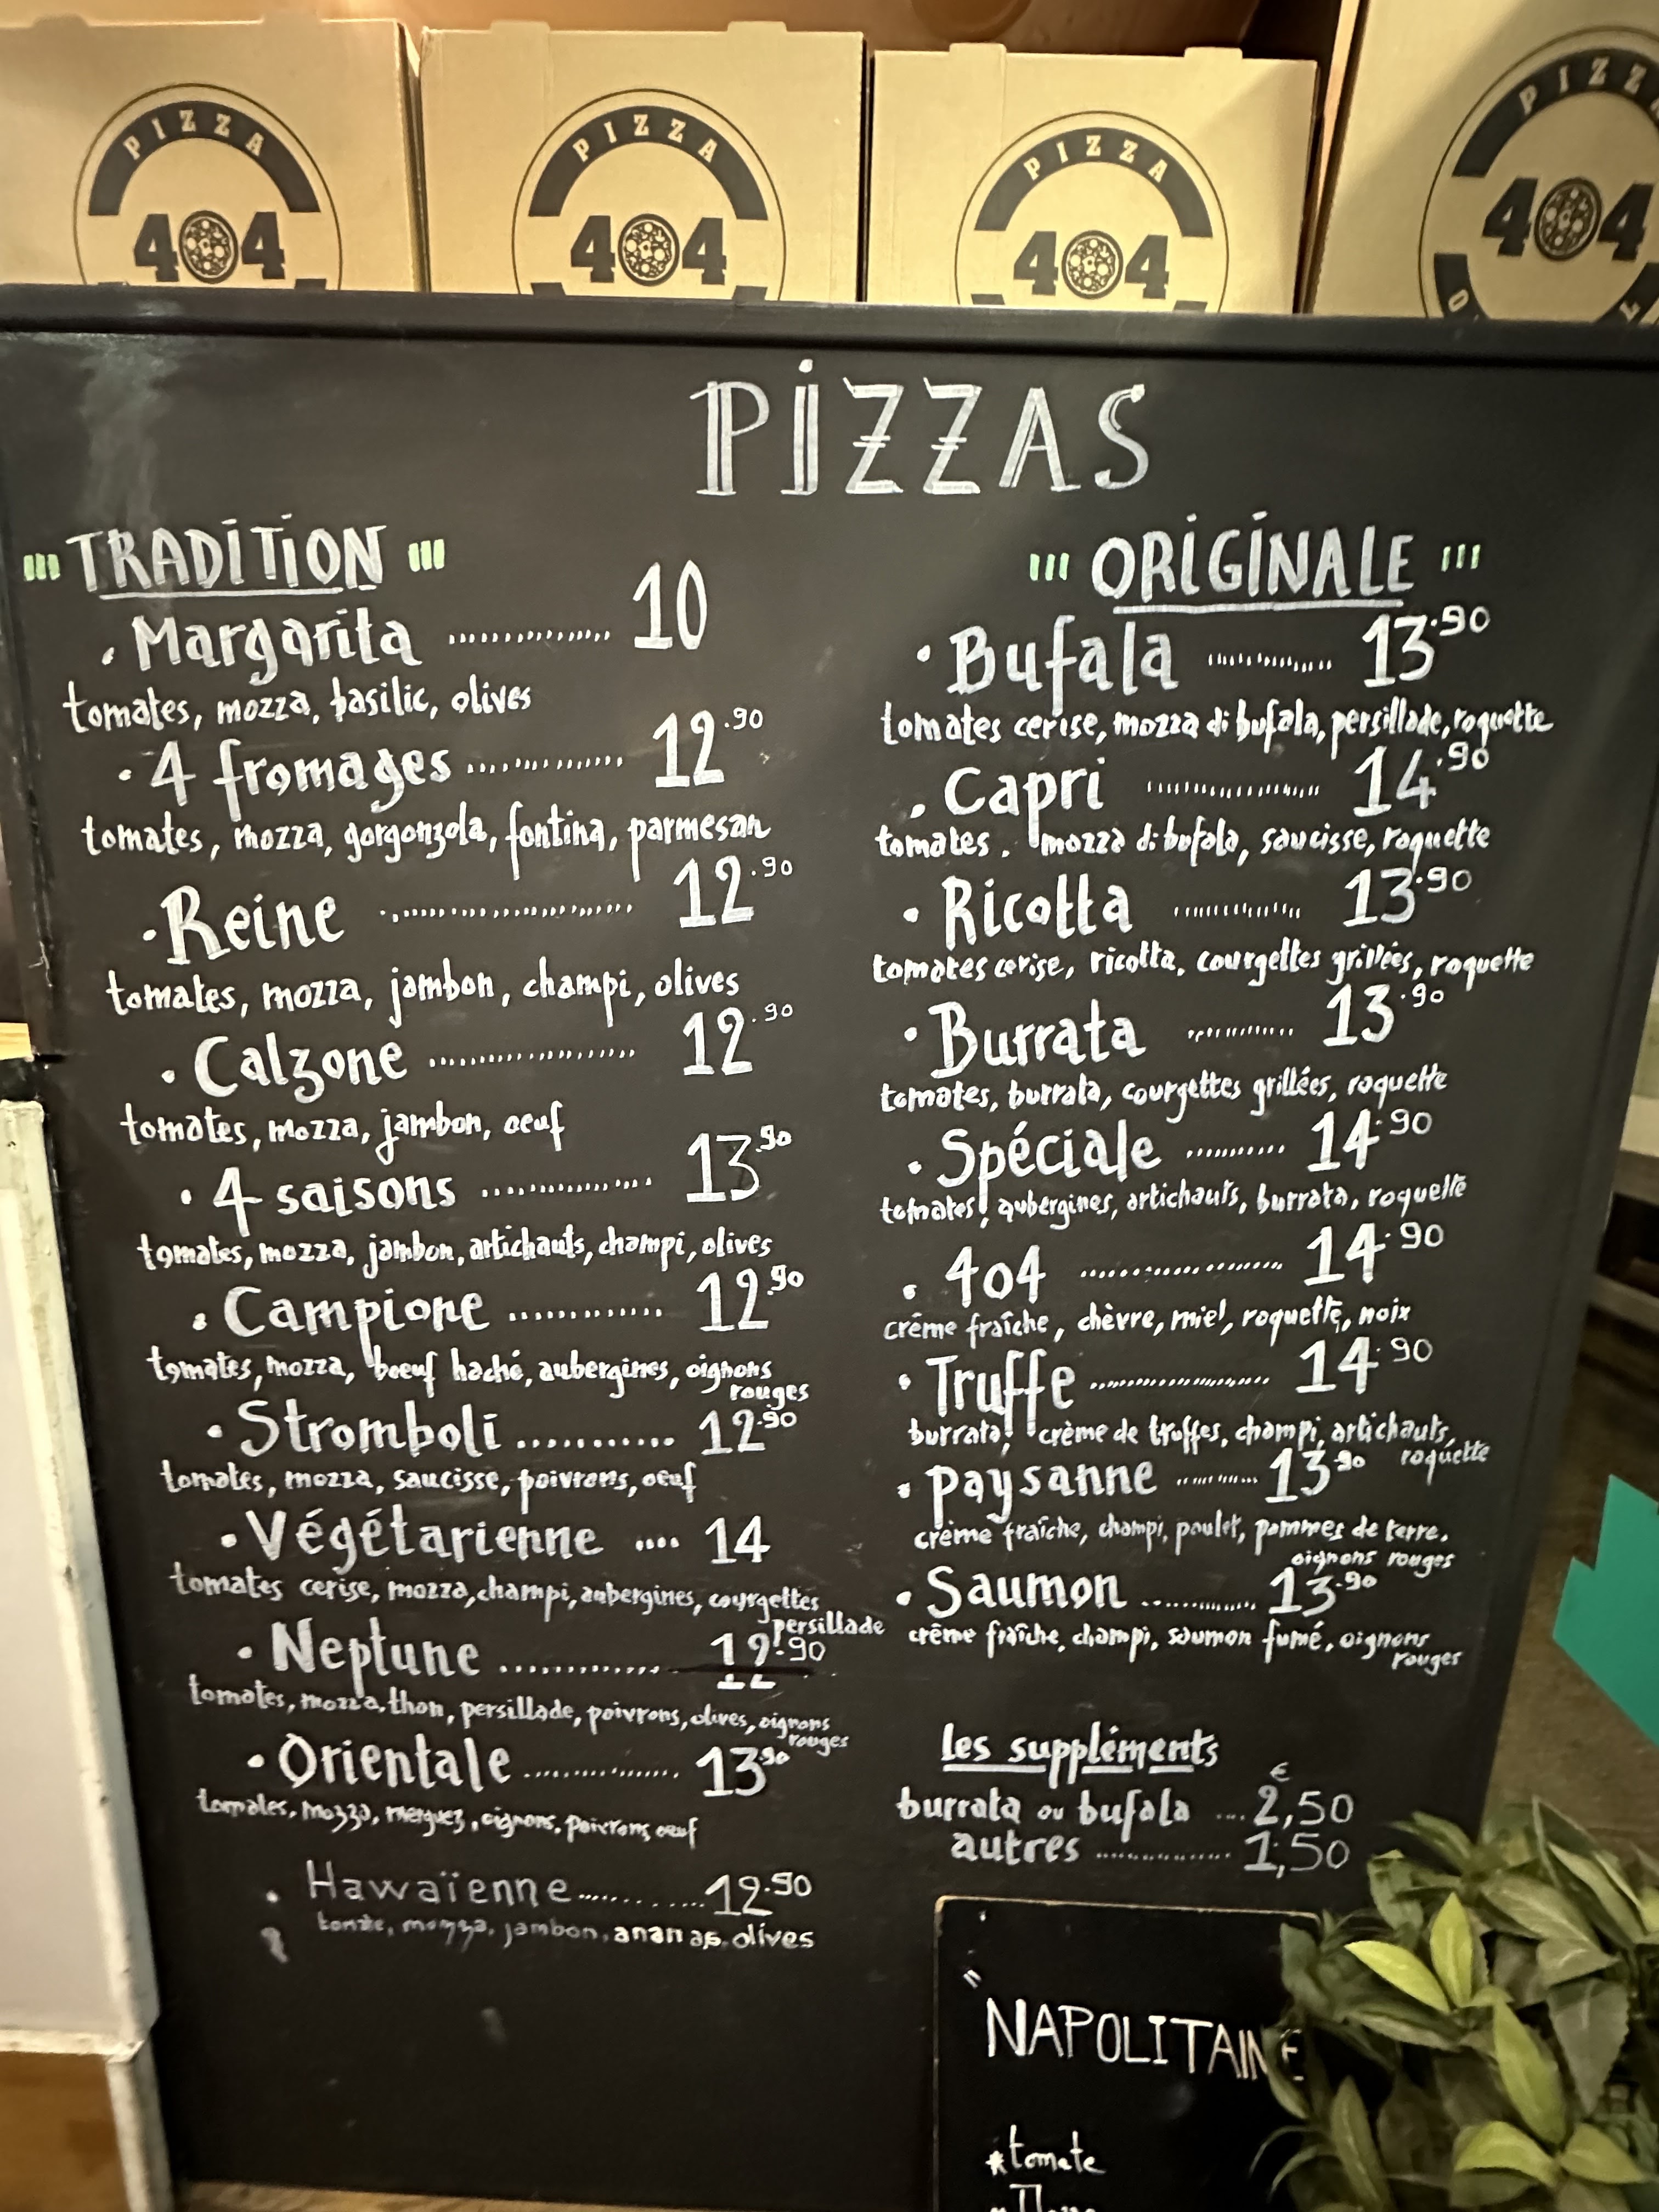 PIZZA
404
PIZZA
404
PIZZA
404
PIZZA
404
PIZZAS
TRADITION
Margarita ............... 10
tomates, mozza, basilic, olives
4 fromages ............... 12.90
tomates, mozza, gorgonzola, fontina, parmesan
Reine ............... 12.90
tomates, mozza, jambon, champi, olives
Calzone ............... 12.90
tomates, mozza, jambon, oeuf
4 saisons ............... 13.90
tomates, mozza, jambon, artichauts, champi, olives
Campione ............... 12.90
tomates, mozza, boeuf haché, aubergines, oignons
rouges
Stromboli ............ 12.90
tomates, mozza, saucisse, poivrons, oeuf
Végétarienne .... 14
tomates cerise, mozza, champi, aubergines, courgettes
persillade
Neptune ............... 12.90
tomates, mozza, thon, persillade, poivrons, olives, oignons
rouges
Orientale ............... 13.90
tomates, mozza, merguez, oignons, poivrons oeuf
Hawaïenne............12.90
tomate, mozza, jambon, ananas, olives
ORIGINALE
Bufala ............ 13.90
tomates cerise, mozza di bufala, persillade, roquette
Capri ............... 14.90
tomates, mozza di bufala, saucisse, roquette
Ricotta ............ 13.90
tomates cerise, ricotta, courgettes grillées, roquette
Burrata ............ 13.90
tomates, burrata, courgettes grillées, roquette
Spéciale ............ 14.90
tomates, aubergines, artichauts, burrata, roquette
404 ............... 14.90
crème fraîche, chèvre, miel, roquette, noix
Truffe ............... 14.90
burrata, crème de truffes, champi, artichauts,
roquette
Paysanne ......... 13.90
crème fraîche, champi, poulet, pommes de terre,
oignons rouges
Saumon ............ 13.90
crème fraîche, champi, saumon fumé, oignons
rouges
les suppléments
€
burrata ou bufala ...2,50
autres ............... 1,50
NAPOLITAINE
*tomate